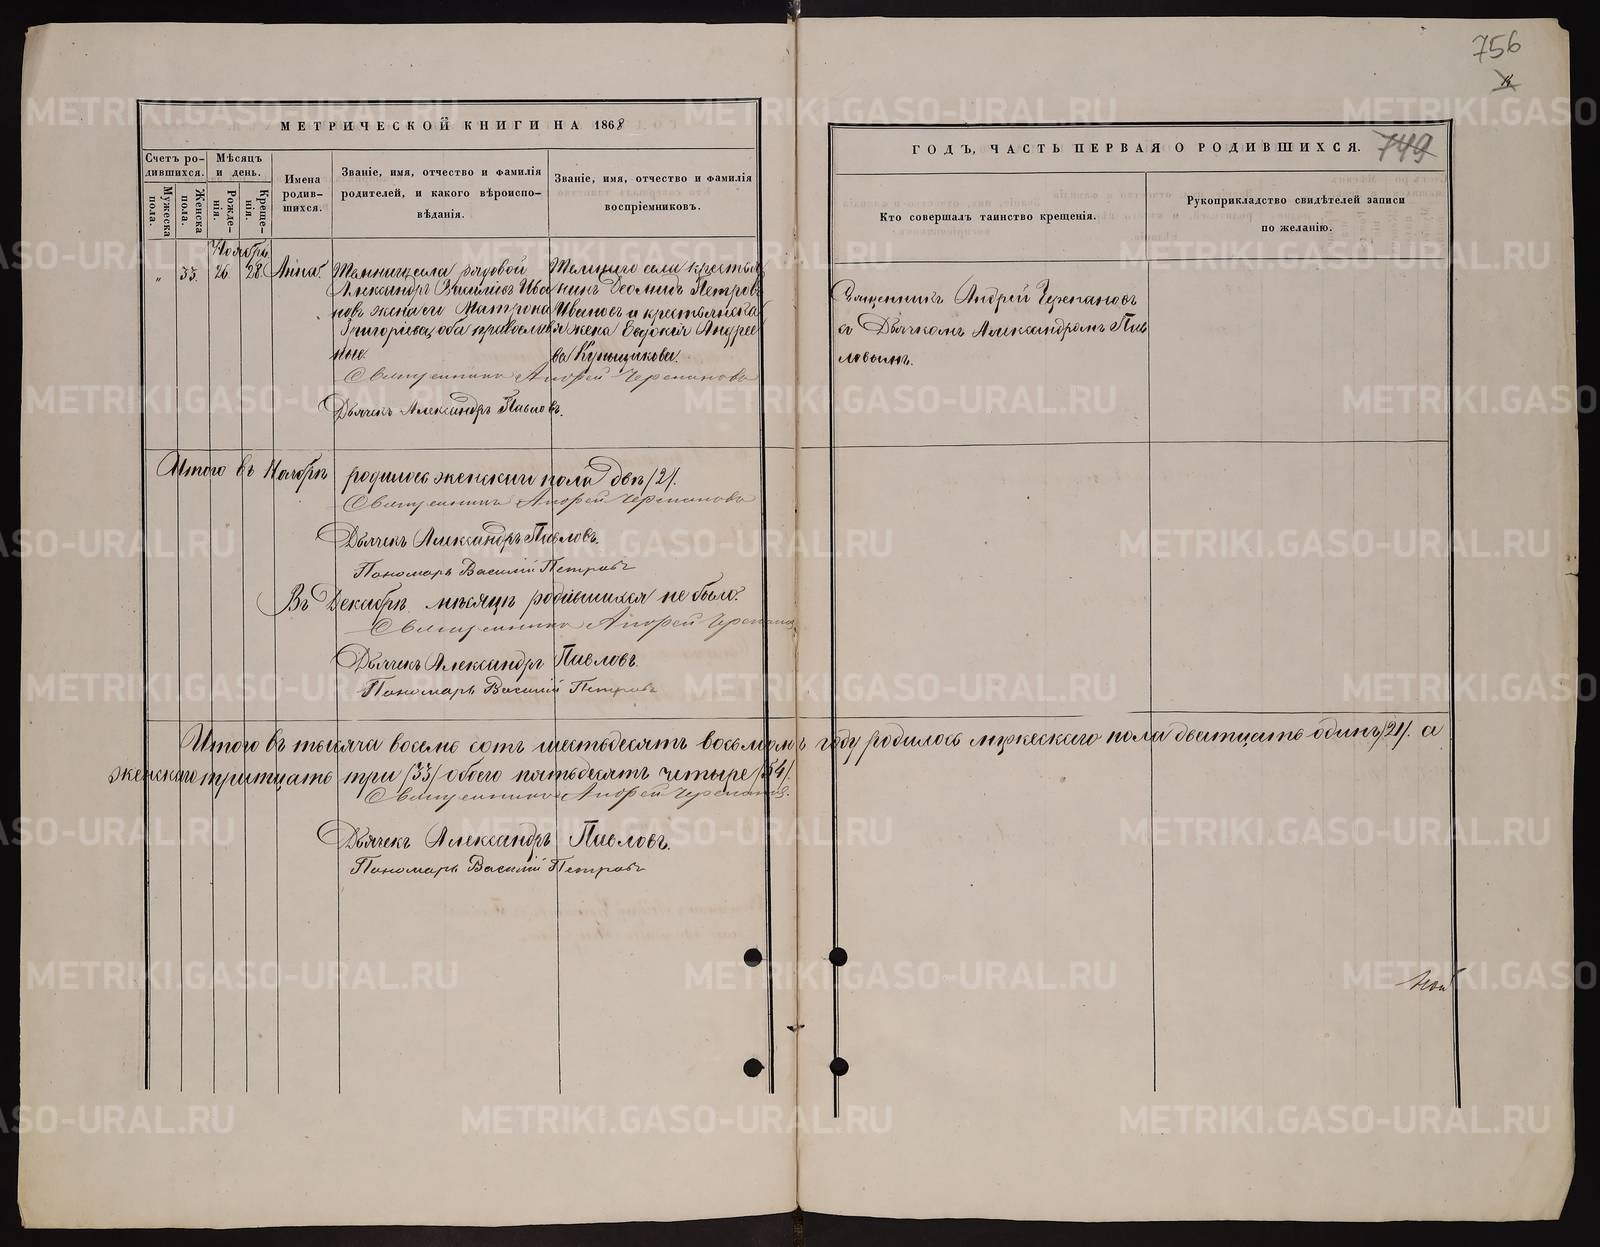 756
МЕТРИЧЕСКОЙ КНИГИ НА 1868
ГОДЪ, ЧАСТЬ ПЕРВАЯ О РОДИВШИХСЯ.
749
Счетъ ро-
дившихся.
Мужеска
пола.
Женска
пола.
Мѣсяцъ
и день.
Рожде-
нія.
Креще-
нія.
Имена
родив-
шихся.
Званіе, имя, отчество и фамилія
родителей, и какого вѣроиспо-
вѣданія.
Званіе, имя, отчество и фамилія
воспріемниковъ.
Кто совершалъ таинство крещенія.
Рукоприкладство свидѣтелей записи
по желанію.
Ноябрь
„ 33. 26. 28. Анна.
села рядовой
Александръ Василіевъ Ива
новъ жена его Матрона
Григоріева, оба православ
ные.
села крестья
нинъ Петровъ
Ивановъ и крестьянска
я жена Евдокія Андрее
ва
Священникъ Андрей Черепановъ
Дьячекъ Александръ Павловъ.
Священникъ Андрей Черепановъ
съ Дьячкомъ Александромъ Пав
ловымъ.
Итого въ Ноябрѣ родилось женскаго пола двѣ /2/.
Священникъ Андрей Черепановъ
Дьячекъ Александръ Павловъ.
Пономарь Василій Петровъ
Въ Декабрѣ мѣсяцѣ родившихся не было.
Священникъ Андрей Черепановъ
Дьячекъ Александръ Павловъ.
Пономарь Василій Петровъ
Итого въ тысяча восемь сотъ шестьдесятъ восьмомъ году родилось мужескаго пола дватцать одинъ /21/. а
женскаго тритцать три /33/ обоего пятьдесятъ четыре /54/.
Священникъ Андрей Черепановъ.
Дьячекъ Александръ Павловъ.
Пономарь Василій Петровъ
METRIKI.GASO-URAL.RU